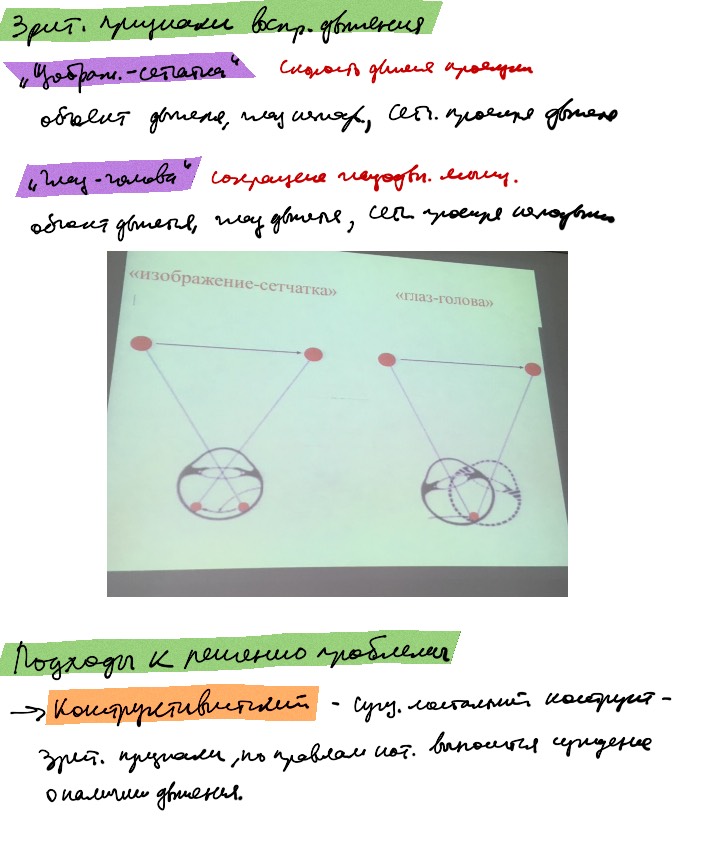 Зрит. признаки воспр. движения
„Изображ.-сетчатка“ скорость движ-я проекции
объект движется, глаз неподв., сетч. проекция движется
„Глаз-голова“ сокращение глазодв. мышц.
объект движется, глаз движется, сетч. проекция неподвижна
«изображение-сетчатка» «глаз-голова»
Подходы к решению проблемы
→ Конструктивистский - сущ. ментальный конструкт -
зрит. признаки, по правилам кот. выносится суждение
о наличии движения.